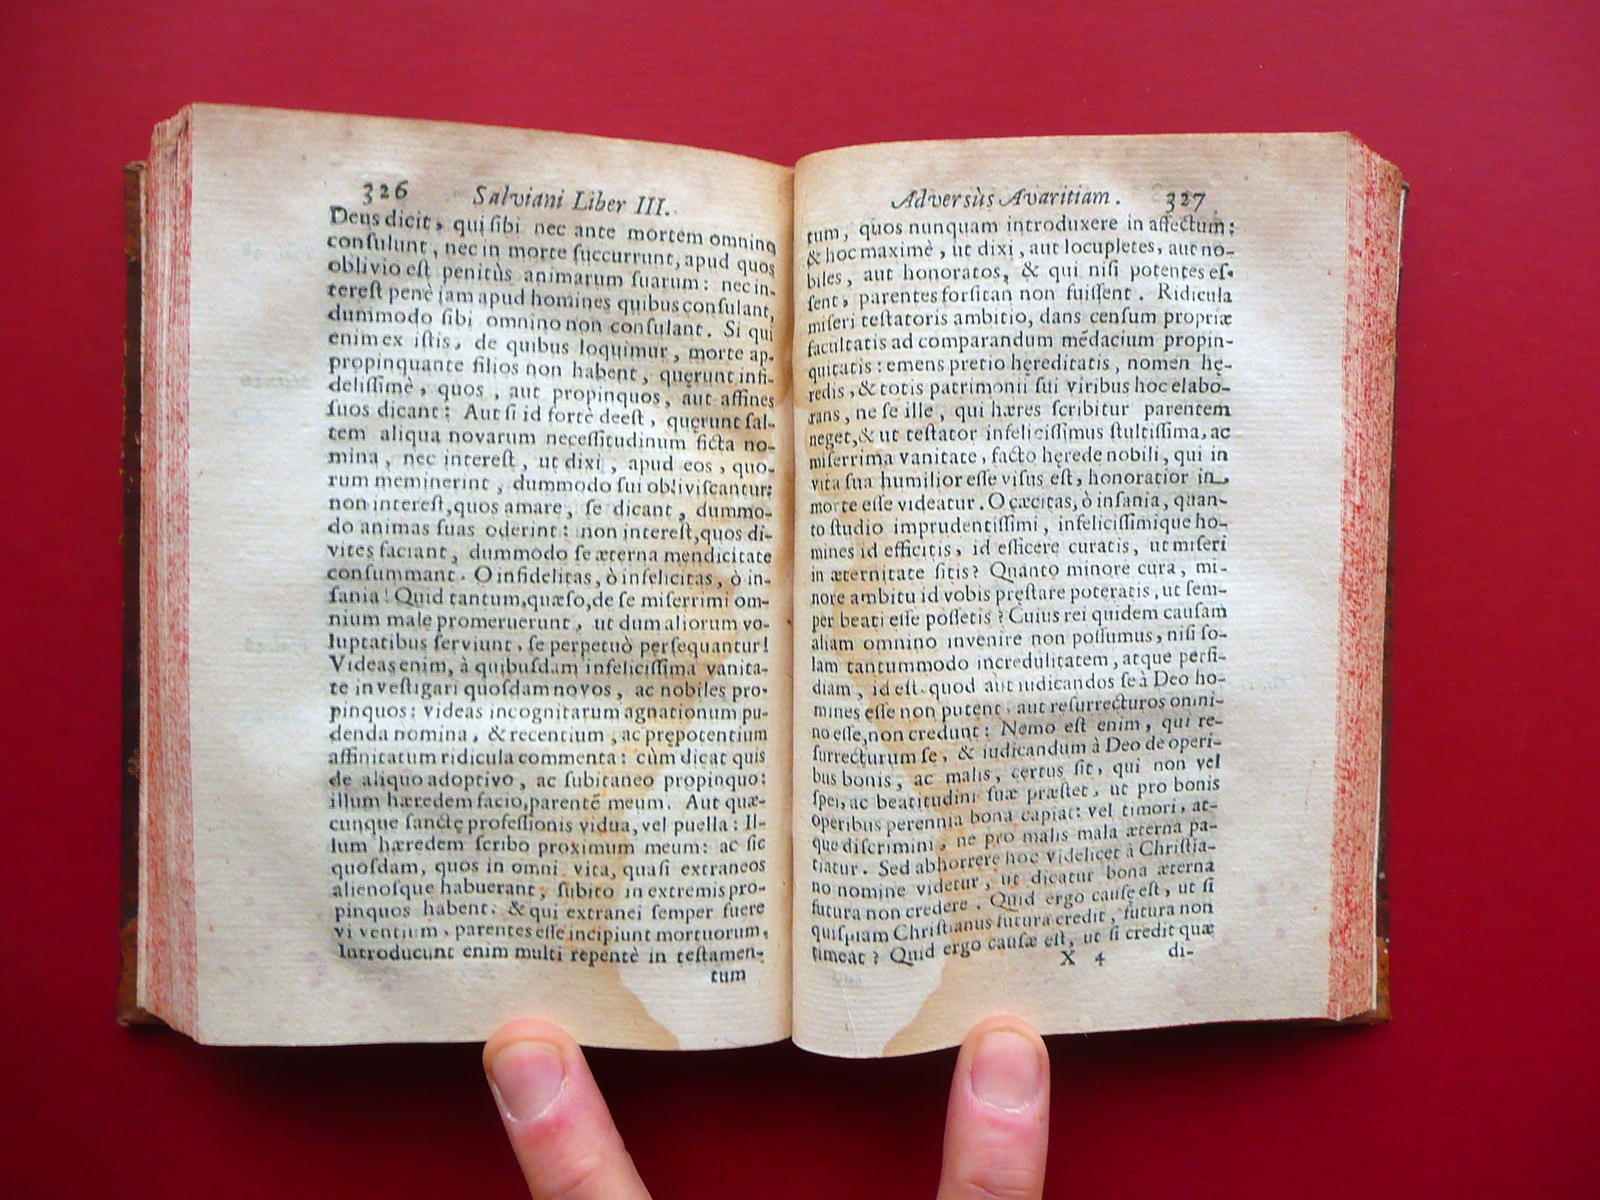 326 Salviani Liber III.
Deus dicit, qui ſibi nec ante mortem omnino
conſulunt, nec in morte ſuccurrunt, apud quos
oblivio eſt penitùs animarum ſuarum: nec in-
tereſt penè jam apud homines quibus conſulant,
dummodo ſibi omnino non conſulant. Si qui
enim ex iſtis, de quibus loquimur, morte ap-
propinquante filios non habent, quęrunt infi-
deliſſimè, quos, aut propinquos, aut affines
ſuos dicant: Aut ſi id fortè deeſt, quęrunt ſal-
tem aliqua novarum neceſſitudinum ficta no-
mina, nec intereſt, ut dixi, apud eos, quo-
rum meminerint, dummodo ſui obliviſcantur:
non intereſt, quos amare, ſe dicant, dummo-
do animas ſuas oderint: non intereſt, quos di-
vites faciant, dummodo ſe æterna mendicitate
conſummant. O infidelitas, ò infelicitas, ò in-
ſania! Quid tantum, quæſo, de ſe miſerrimi om-
nium male promeruerunt, ut dum aliorum vo-
luptatibus ſerviunt, ſe perpetuò perſequantur!
Videas enim, à quibuſdam infeliciſſima vanita-
te inveſtigari quoſdam novos, ac nobiles pro-
pinquos: videas incognitarum agnationum pu-
denda nomina, & recentium, ac prępotentium
affinitatum ridicula commenta: cùm dicat quis
de aliquo adoptivo, ac ſubitaneo propinquo:
illum hæredem facio, parentẽ meum. Aut quæ-
cunque ſanctę profeſſionis vidua, vel puella: Il-
lum hæredem ſcribo proximum meum: ac ſic
quoſdam, quos in omni vita, quaſi extraneos
alienoſque habuerant, ſubito in extremis pro-
pinquos habent. & qui extranei ſemper fuere
viventium, parentes eſſe incipiunt mortuorum.
Introducunt enim multi repentè in teſtamen-
tum
Adversùs Avaritiam. 327
tum, quos nunquam introduxere in affectum:
& hoc maximè, ut dixi, aut locupletes, aut no-
biles, aut honoratos, & qui niſi potentes eſ-
ſent, parentes forſitan non fuiſſent. Ridicula
miſeri teſtatoris ambitio, dans cenſum propriæ
facultatis ad comparandum mẽdacium propin-
quitatis: emens pretio hęreditatis, nomen hę-
redis, & totis patrimonii ſui viribus hoc elabo-
rans, ne ſe ille, qui hæres ſcribitur parentem
neget, & ut teſtator infeliciſſimus ſtultiſſima, ac
miſerrima vanitate, facto hęrede nobili, qui in
vita ſua humilior eſſe viſus eſt, honoratior in
morte eſſe videatur. O cæcitas, ò inſania, quan-
to ſtudio imprudentiſſimi, infeliciſſimique ho-
mines id efficitis, id efficere curatis, ut miſeri
in æternitate ſitis? Quanto minore cura, mi-
nore ambitu id vobis pręſtare poteratis, ut ſem-
per beati eſſe poſſetis? Cuius rei quidem cauſam
aliam omnino invenire non poſſumus, niſi ſo-
lam tantummodo incredulitatem, atque perfi-
diam, id eſt quod aut iudicandos ſe à Deo ho-
mines eſſe non putent, aut reſurrecturos omni-
no eſſe, non credunt: Nemo eſt enim, qui re-
ſurrecturum ſe, & iudicandum à Deo de operi-
bus bonis, ac malis, certus ſit, qui non vel
ſpei, ac beatitudini ſuæ præſtet, ut pro bonis
operibus perennia bona capiat: vel timori, at-
que diſcrimini, ne pro malis mala æterna pa-
tiatur. Sed abhorrere hoc videlicet à Chriſtia-
no nomine videtur, ut dicatur bona æterna
futura non credere. Quid ergo cauſę eſt, ut ſi
quiſpiam Chriſtianus futura credit, futura non
timeat? Quid ergo cauſæ eſt, ut ſi credit quæ
X 4 di-